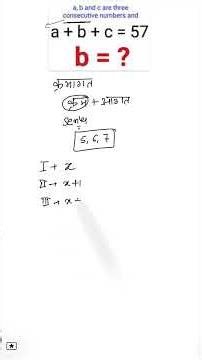 a, b and c are three
consecutive numbers and
a + b + c = 57
b = ?
क्रमागत
क्रम + आगत
Series
5, 6, 7
I → x
II → x+1
III → x+